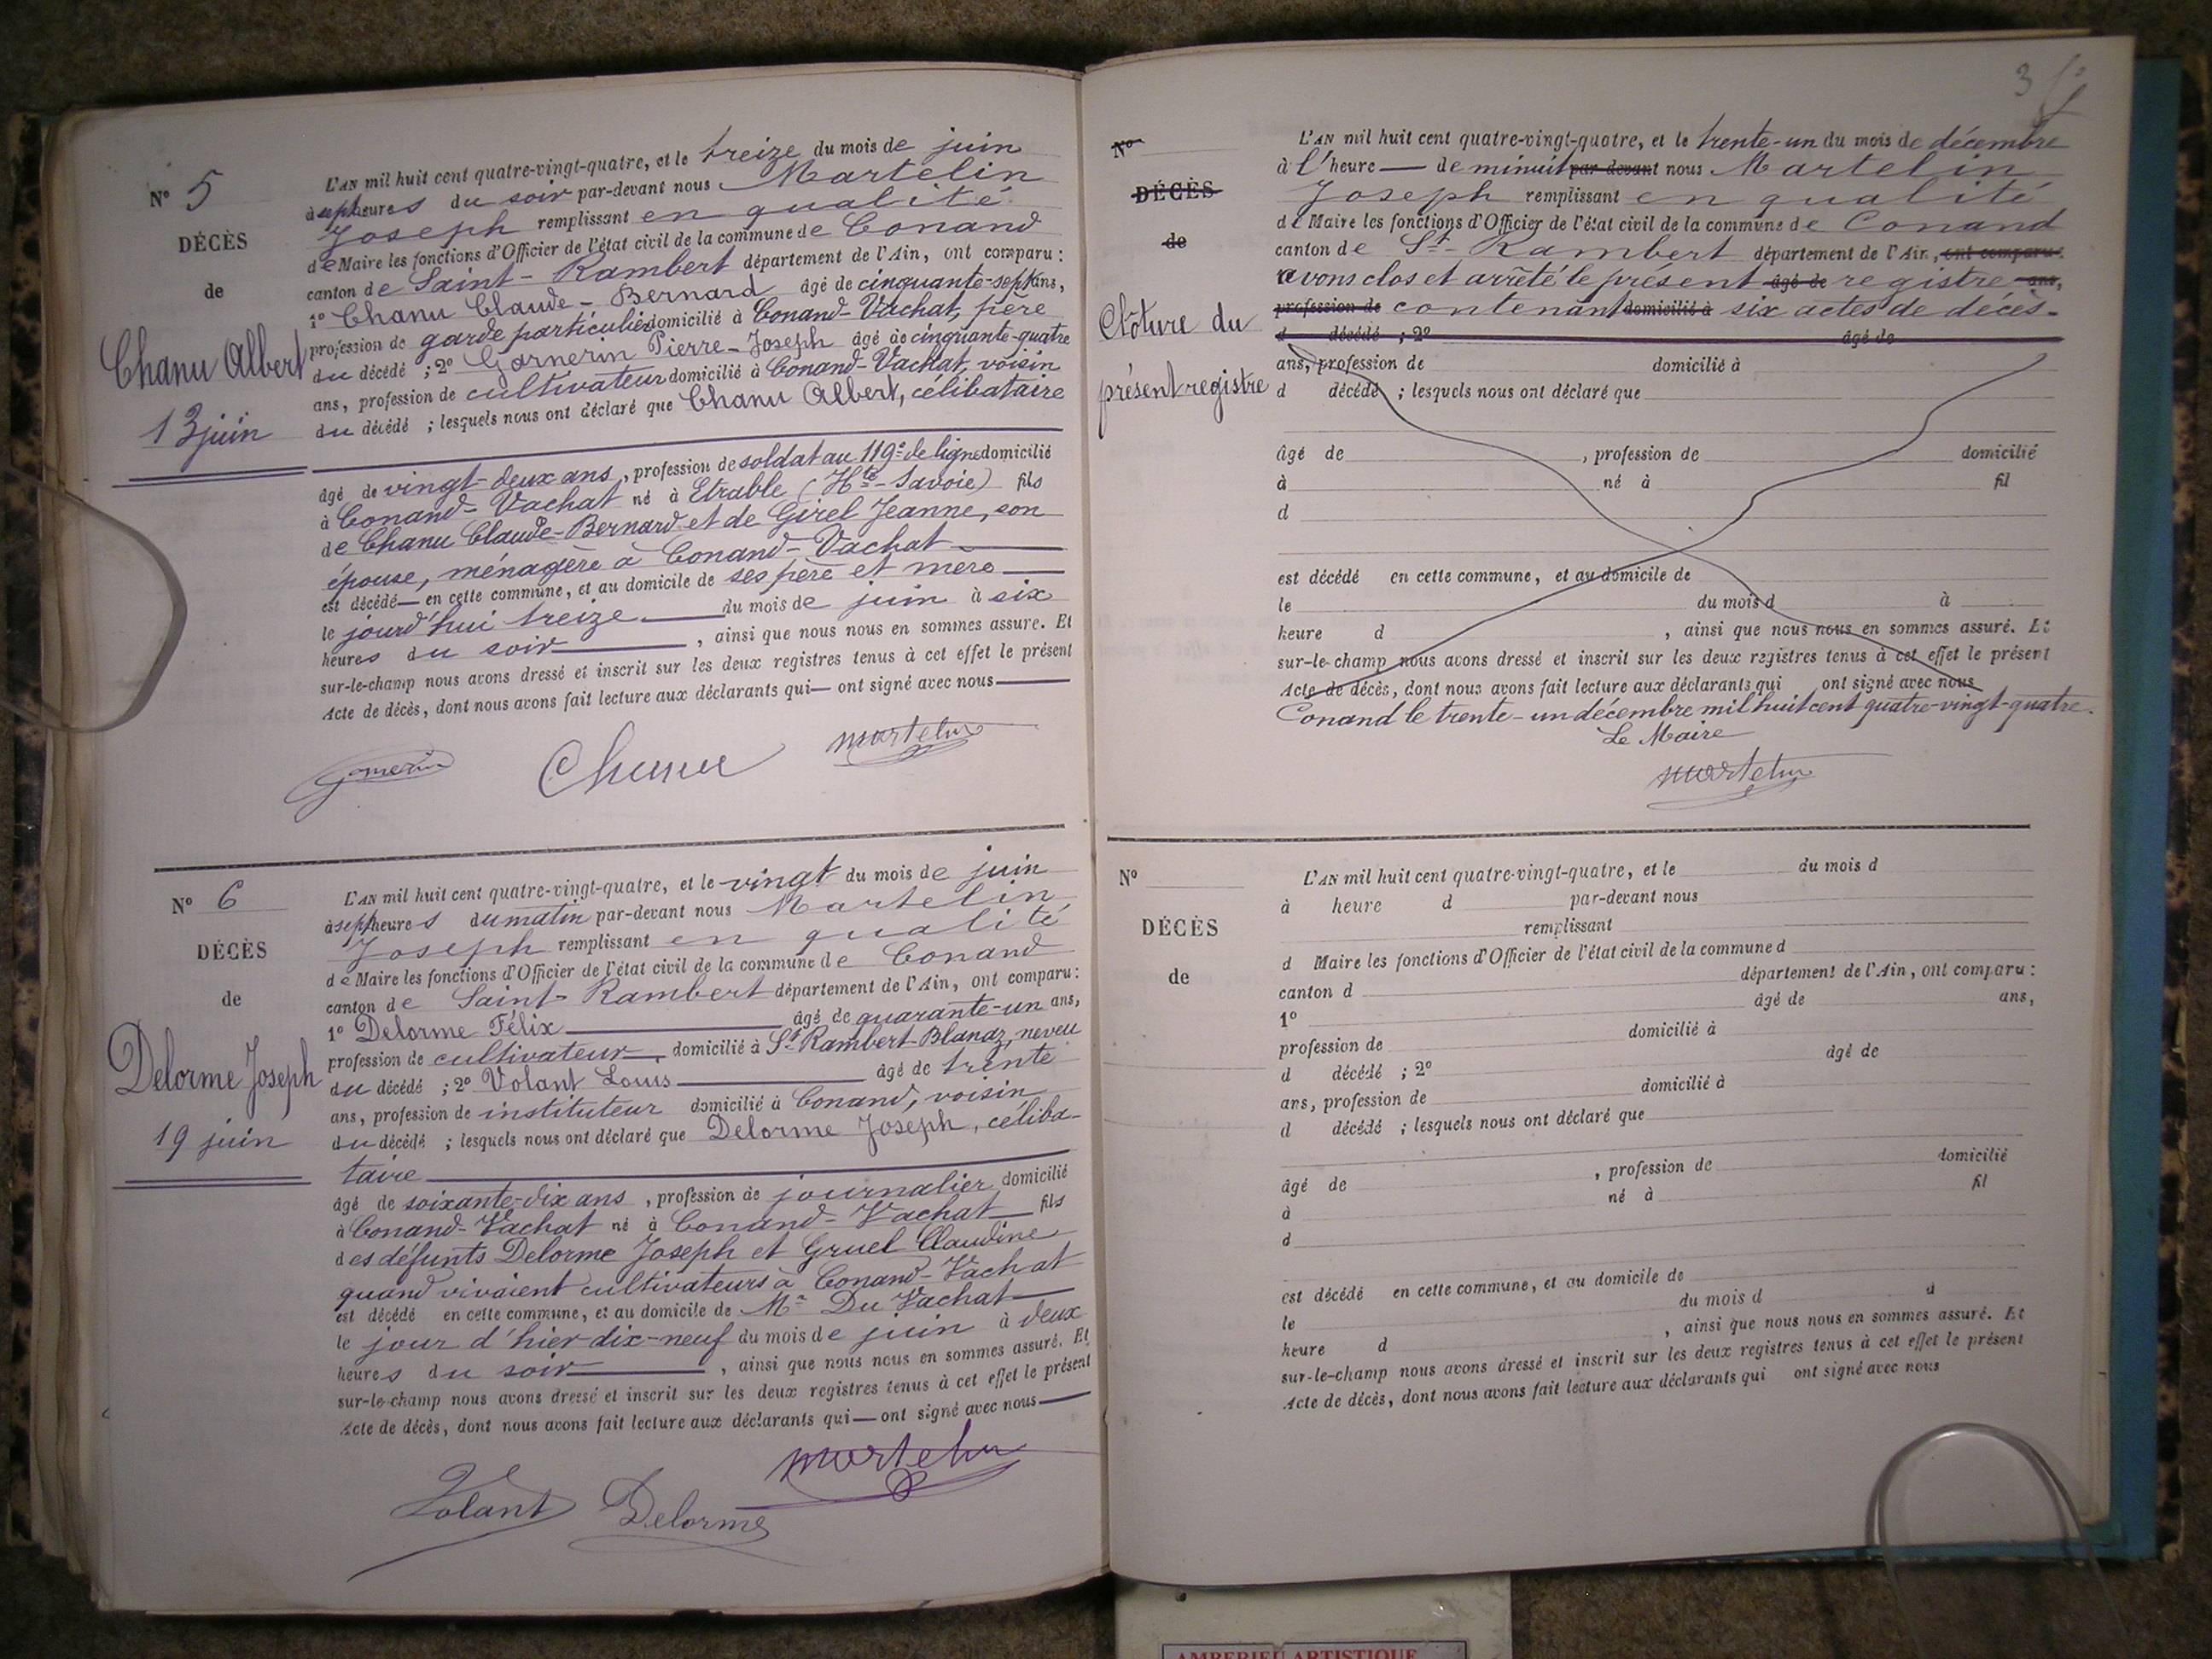 N° 5
DÉCÈS
de
Chanu Albert
13 juin
L'AN mil huit cent quatre-vingt-quatre, et le treize du mois de juin
à sept heures du soir par-devant nous Martelin
Joseph remplissant en qualité
de Maire les fonctions d'Officier de l'état civil de la commune de Conand
canton de Saint-Rambert département de l'Ain, ont comparu :
1° Chanu Claude-Bernard âgé de cinquante-sept ans,
profession de garde particulier domicilié à Conand-Vachat, père
du décédé ; 2° Garnerin Pierre-Joseph âgé de cinquante-quatre
ans, profession de cultivateur domicilié à Conand-Vachat, voisin
du décédé ; lesquels nous ont déclaré que Chanu Albert, célibataire
âgé de vingt-deux ans, profession de soldat au 119e de ligne domicilié
à Conand-Vachat né à Etrable (Hte-Savoie) fils
de Chanu Claude-Bernard et de Girel Jeanne, son
épouse, ménagère à Conand-Vachat
est décédé en cette commune, et au domicile de ses père et mère
le jourd'hui treize du mois de juin à six
heures du soir, ainsi que nous nous en sommes assuré. Et
sur-le-champ nous avons dressé et inscrit sur les deux registres tenus à cet effet le présent
Acte de décès, dont nous avons fait lecture aux déclarants qui ont signé avec nous
Garnerin Chanu Martelin
N° 6
DÉCÈS
de
Delorme Joseph
19 juin
L'AN mil huit cent quatre-vingt-quatre, et le vingt du mois de juin
à sept heures du matin par-devant nous Martelin
Joseph remplissant en qualité
de Maire les fonctions d'Officier de l'état civil de la commune de Conand
canton de Saint-Rambert département de l'Ain, ont comparu :
1° Delorme Félix âgé de quarante-un ans,
profession de cultivateur, domicilié à St-Rambert-Blanaz, neveu
du décédé ; 2° Volant Louis âgé de trente
ans, profession de instituteur domicilié à Conand, voisin
du décédé ; lesquels nous ont déclaré que Delorme Joseph, céliba-
taire
âgé de soixante-dix ans, profession de journalier domicilié
à Conand-Vachat né à Conand-Vachat fils
des défunts Delorme Joseph et Gruel Claudine
quand vivaient cultivateurs à Conand-Vachat
est décédé en cette commune, et au domicile de Mr Du Vachat
le jour d'hier dix-neuf du mois de juin à deux
heures du soir, ainsi que nous nous en sommes assuré. Et
sur-le-champ nous avons dressé et inscrit sur les deux registres tenus à cet effet le présent
Acte de décès, dont nous avons fait lecture aux déclarants qui ont signé avec nous
Martelin
Volant Delorme
3
N°
DÉCÈS
de
Clôture du
présent registre
L'AN mil huit cent quatre-vingt-quatre, et le trente-un du mois de décembre
à l'heure de minuit par-devant nous Martelin
Joseph remplissant en qualité
de Maire les fonctions d'Officier de l'état civil de la commune de Conand
canton de St-Rambert département de l'Ain, ont comparu :
avons clos et arrêté le présent âgé de registre ans,
profession de contenant domicilié à six actes de décès.
d décédé ; 2° âgé de
ans, profession de domicilié à
d décédé ; lesquels nous ont déclaré que
âgé de , profession de domicilié
à né à fil
d
est décédé en cette commune, et au domicile de
le du mois d à
heure d , ainsi que nous nous en sommes assuré. Et
sur-le-champ nous avons dressé et inscrit sur les deux registres tenus à cet effet le présent
Acte de décès, dont nous avons fait lecture aux déclarants qui ont signé avec nous
Conand le trente-un décembre mil huit cent quatre-vingt-quatre.
Le Maire
Martelin
N°
DÉCÈS
de
L'AN mil huit cent quatre-vingt-quatre, et le du mois d
à heure d par-devant nous
remplissant
d Maire les fonctions d'Officier de l'état civil de la commune d
canton d département de l'Ain, ont comparu :
1° âgé de ans,
profession de domicilié à
d décédé ; 2° âgé de
ans, profession de domicilié à
d décédé ; lesquels nous ont déclaré que
âgé de , profession de domicilié
à né à fil
d
est décédé en cette commune, et au domicile de
le du mois d à
heure d , ainsi que nous nous en sommes assuré. Et
sur-le-champ nous avons dressé et inscrit sur les deux registres tenus à cet effet le présent
Acte de décès, dont nous avons fait lecture aux déclarants qui ont signé avec nous
AMBERIEU ARTISTIQUE